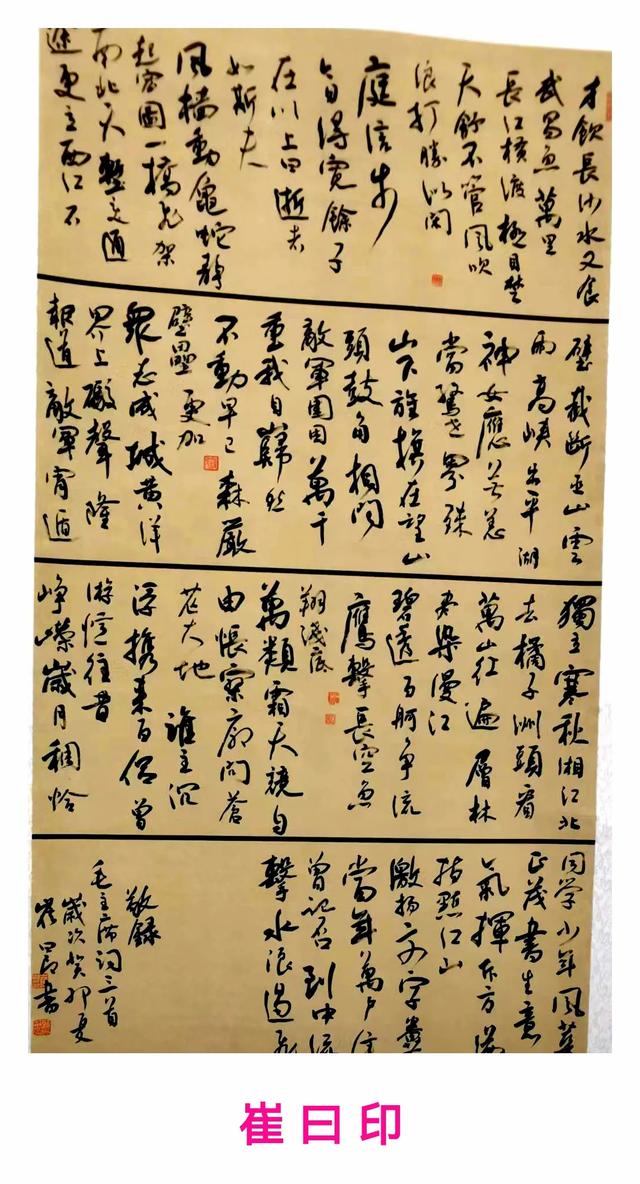 才飲長沙水又食
武昌魚萬里
長江橫渡極目楚
天舒不管風吹
浪打勝似閒
庭信步
今日得寬餘子
在川上曰逝者
如斯夫
風檣動龜蛇靜
起宏圖一橋飛架
南北天塹變通
途更立西江石
壁截斷巫山雲
雨高峽出平湖
神女應無恙
當驚世界殊
山下旌旗在望山
頭鼓角相聞
敵軍圍困萬千
重我自巋然
不動早已森嚴
壁壘更加
眾志成城黃洋
界上礮聲隆
報道敵軍宵遁
獨立寒秋湘江北
去橘子洲頭看
萬山紅遍層林
盡染漫江
碧透百舸爭流
鷹擊長空魚
翔淺底
萬類霜天競自
由悵寥廓問蒼
茫大地誰主沉
浮攜來百侶曾
游憶往昔
崢嶸歲月稠恰
同學少年風華
正茂書生意
氣揮斥方遒
指點江山
激揚文字糞
當年萬戶侯
曾記否到中流
擊水浪遏飛
敬錄
毛主席詞三首
歲次癸卯夏
崔曰印書
崔曰印